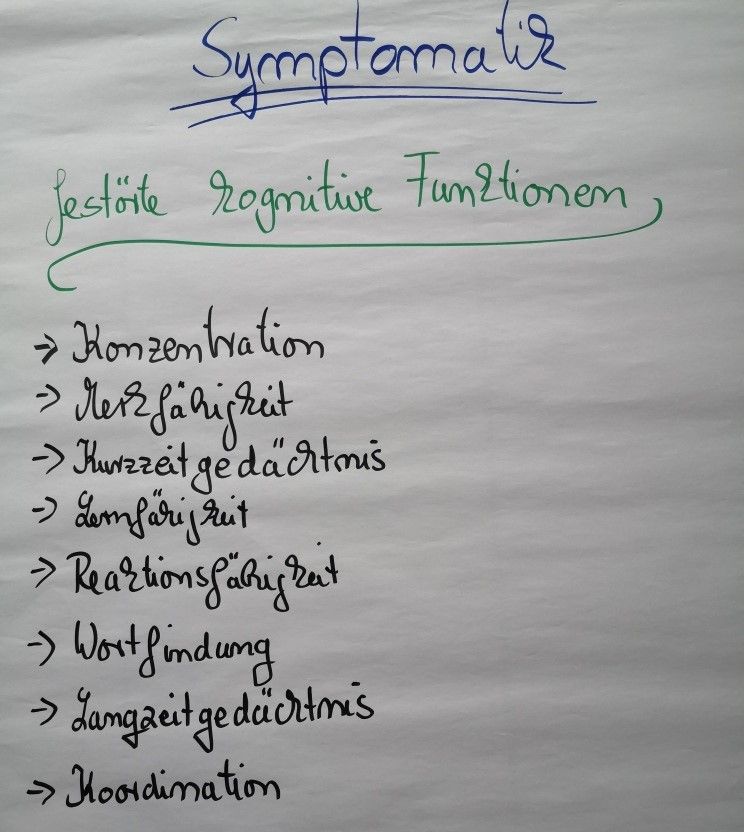 Symptomatik
gestörte kognitive Funktionen
→ Konzentration
→ Merkfähigkeit
→ Kurzzeitgedächtnis
→ Lernfähigkeit
→ Reaktionsfähigkeit
→ Wortfindung
→ Langzeitgedächtnis
→ Koordination